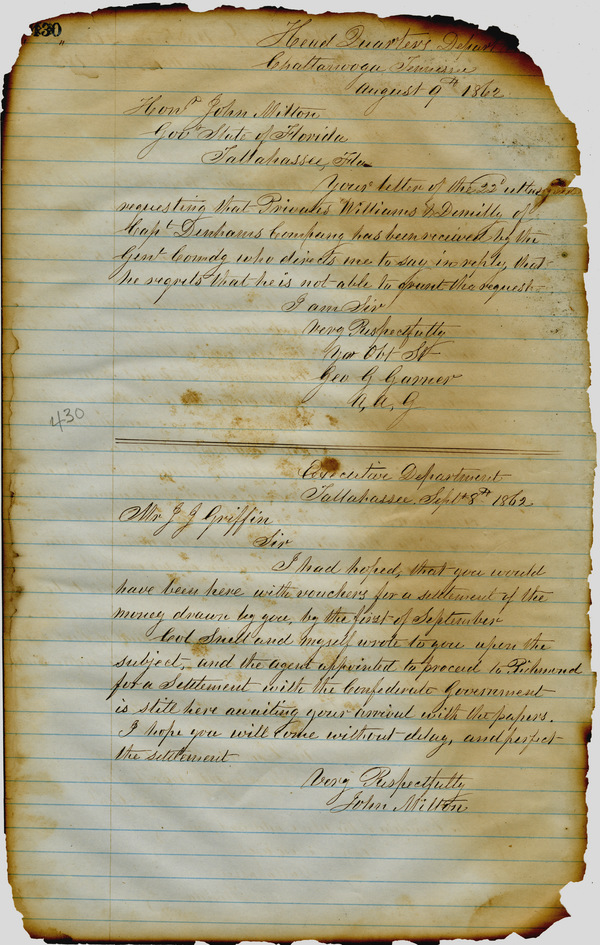 430
Head Quarters Depart
Chattanooga Tennessee
August 9th 1862
Honl John Milton
Govr State of Florida
Tallahassee, Fla
Your letter of the 22d ultimo
requesting that Privates Williams & Demilly of
Capt Denhams Company has been received by the
Genl Comdg who directs me to say in reply, that
he regrets that he is not able to grant the request.
I am Sir
Very Respectfully
Your Obt St
Geo G Garner
A, A, G
430
Executive Department
Tallahassee Sept 8th 1862
Mr J J Griffin
Sir
I had hoped, that you would
have been here with vouchers for a settlement of the
money drawn by you, by the first of September
Col Snell and myself wrote to you upon the
subject, and the agent appointed to proceed to Richmond
for a Settlement with the Confederate Government
is still here awaiting your arrival with the papers.
I hope you will come without delay, and perfect
the settlement
Very Respectfully
John Milton